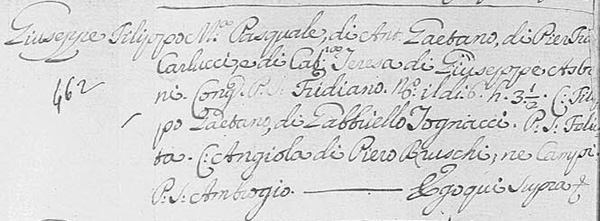 Giuseppe Filippo M.ª Pasquale, di Ant. Gaetano, di Pier Fil
Carlucci, e di Cat.ª Teresa di Giuseppe Asba
462 ni. Cong. P. S. Fridiano. N.º il dì 6. h. 3 ½. C: Filip
po Gaetano, di Gabbriello Tognacci. P. S. Felici
ta. C: Angiola di Piero Bruschi, ne Campi
P. S. Ambrogio. Supra